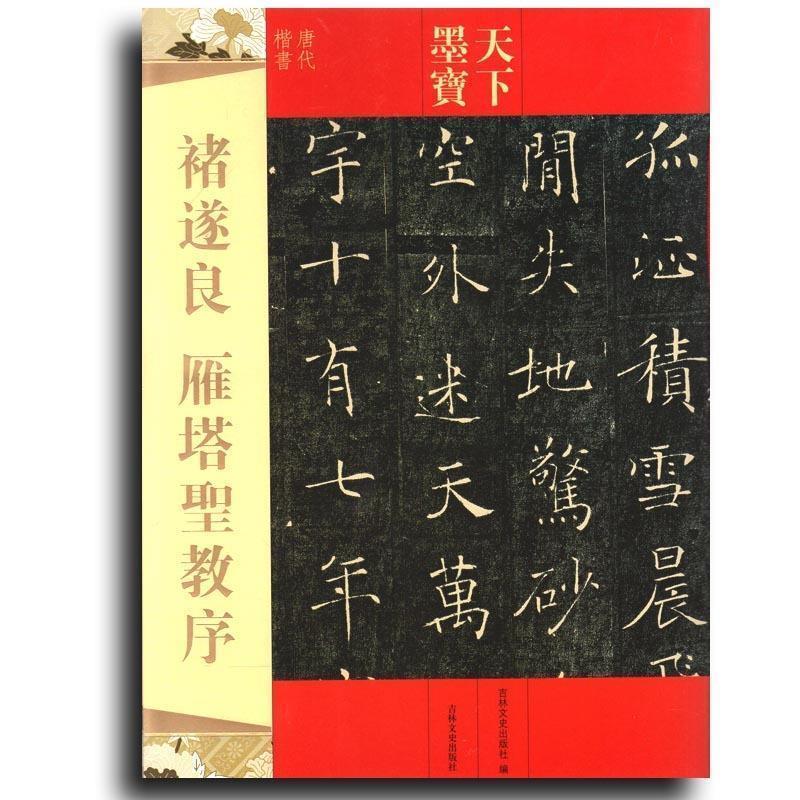 天下
墨寶
唐代
楷書
褚遂良 雁塔聖教序
孤征積雪晨飛
閒失地驚砂
空外迷天萬
宇十有七年
吉林文史出版社 编
吉林文史出版社